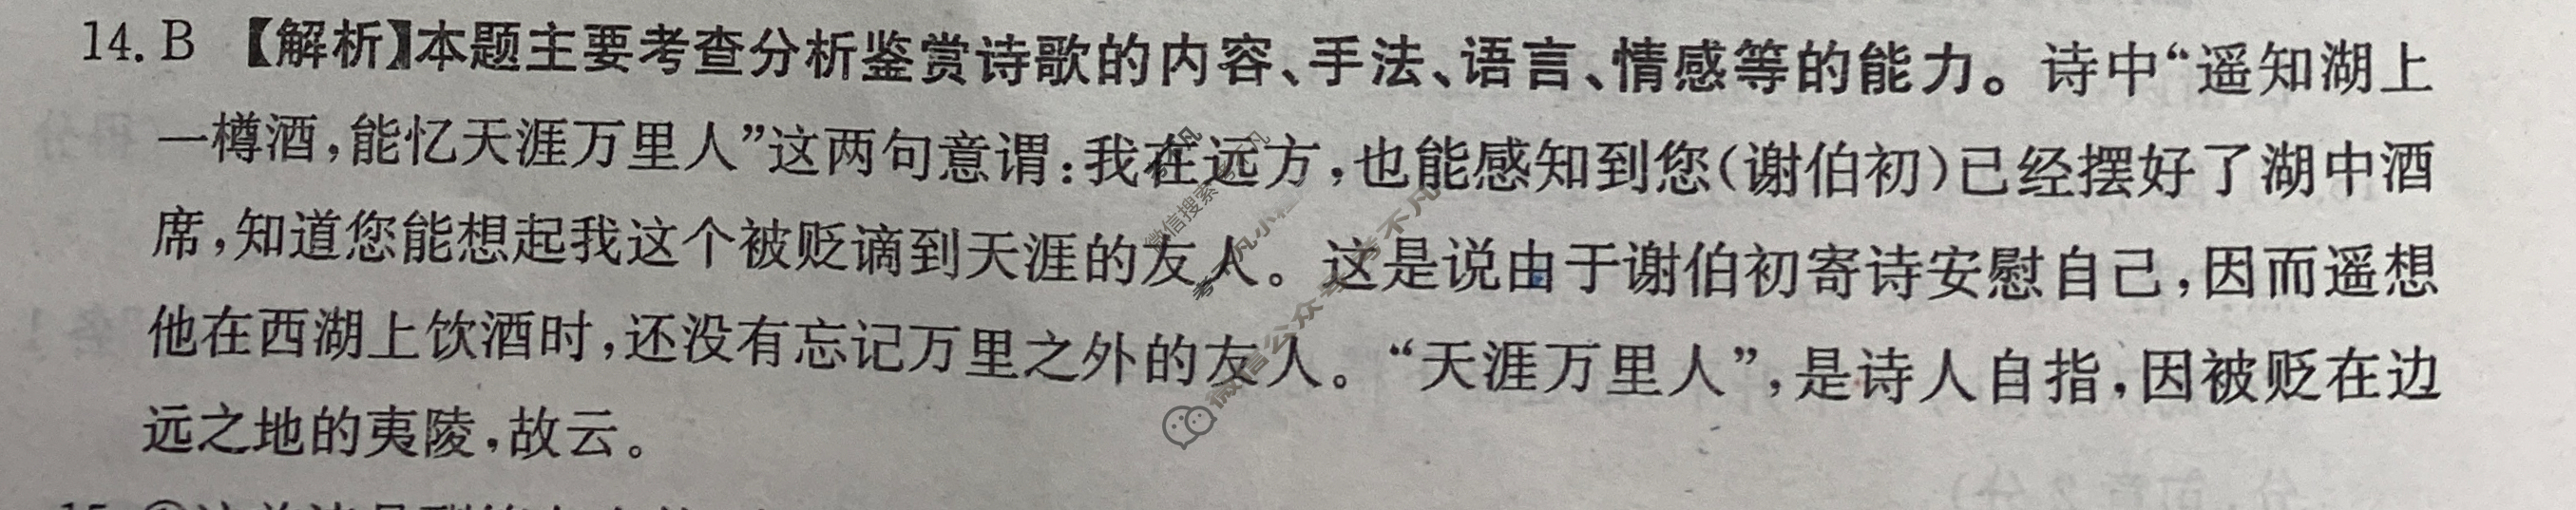 14. B 【解析】本题主要考查分析鉴赏诗歌的内容、手法、语言、情感等的能力。诗中“遥知湖上
一樽酒,能忆天涯万里人”这两句意谓:我在远方,也能感知到您(谢伯初)已经摆好了湖中酒
席,知道您能想起我这个被贬谪到天涯的友人。这是说由于谢伯初寄诗安慰自己,因而遥想
他在西湖上饮酒时,还没有忘记万里之外的友人。“天涯万里人”,是诗人自指,因被贬在边
远之地的夷陵,故云。
微信搜索
微信公众号